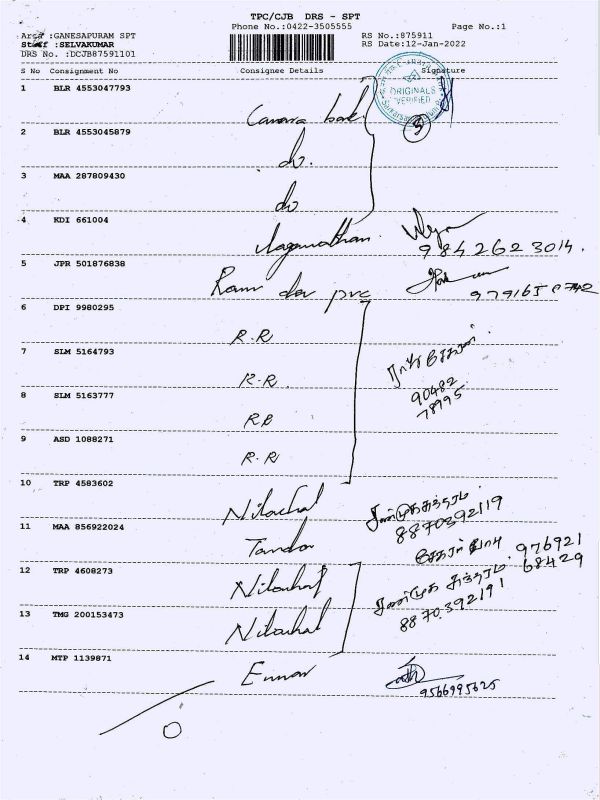 TPC/CJB DRS - SPT
Phone No.:0422-3505555 Page No.:1
Area :GANESAPURAM SPT RS No.:875911
Staff :SELVAKUMAR RS Date:12-Jan-2022
DRS No. :DCJB87591101
S No Consignment No Consignee Details Signature
ORIGINALS
VERIFIED
1 BLR 4553047793
Canara bank
3
2 BLR 4553045879
do.
3 MAA 287809430
do
4 KDI 661004
Naganathan.
9842623014.
5 JPR 501876838
Ram dev pvc
6 DPI 9980295
R.R
7 SLM 5164793
R.R.
90482
78995
8 SLM 5163777
R R
9 ASD 1088271
R.R
10 TRP 4583602
Nilachal
சண்முகசுந்தரம்
8870392119
11 MAA 856922024
Tandon
976921
68429
12 TRP 4608273
Nilachal
சண்முக சுந்தரம்
8870392191
13 TMG 200153473
Nilachal
14 MTP 1139871
9566995625